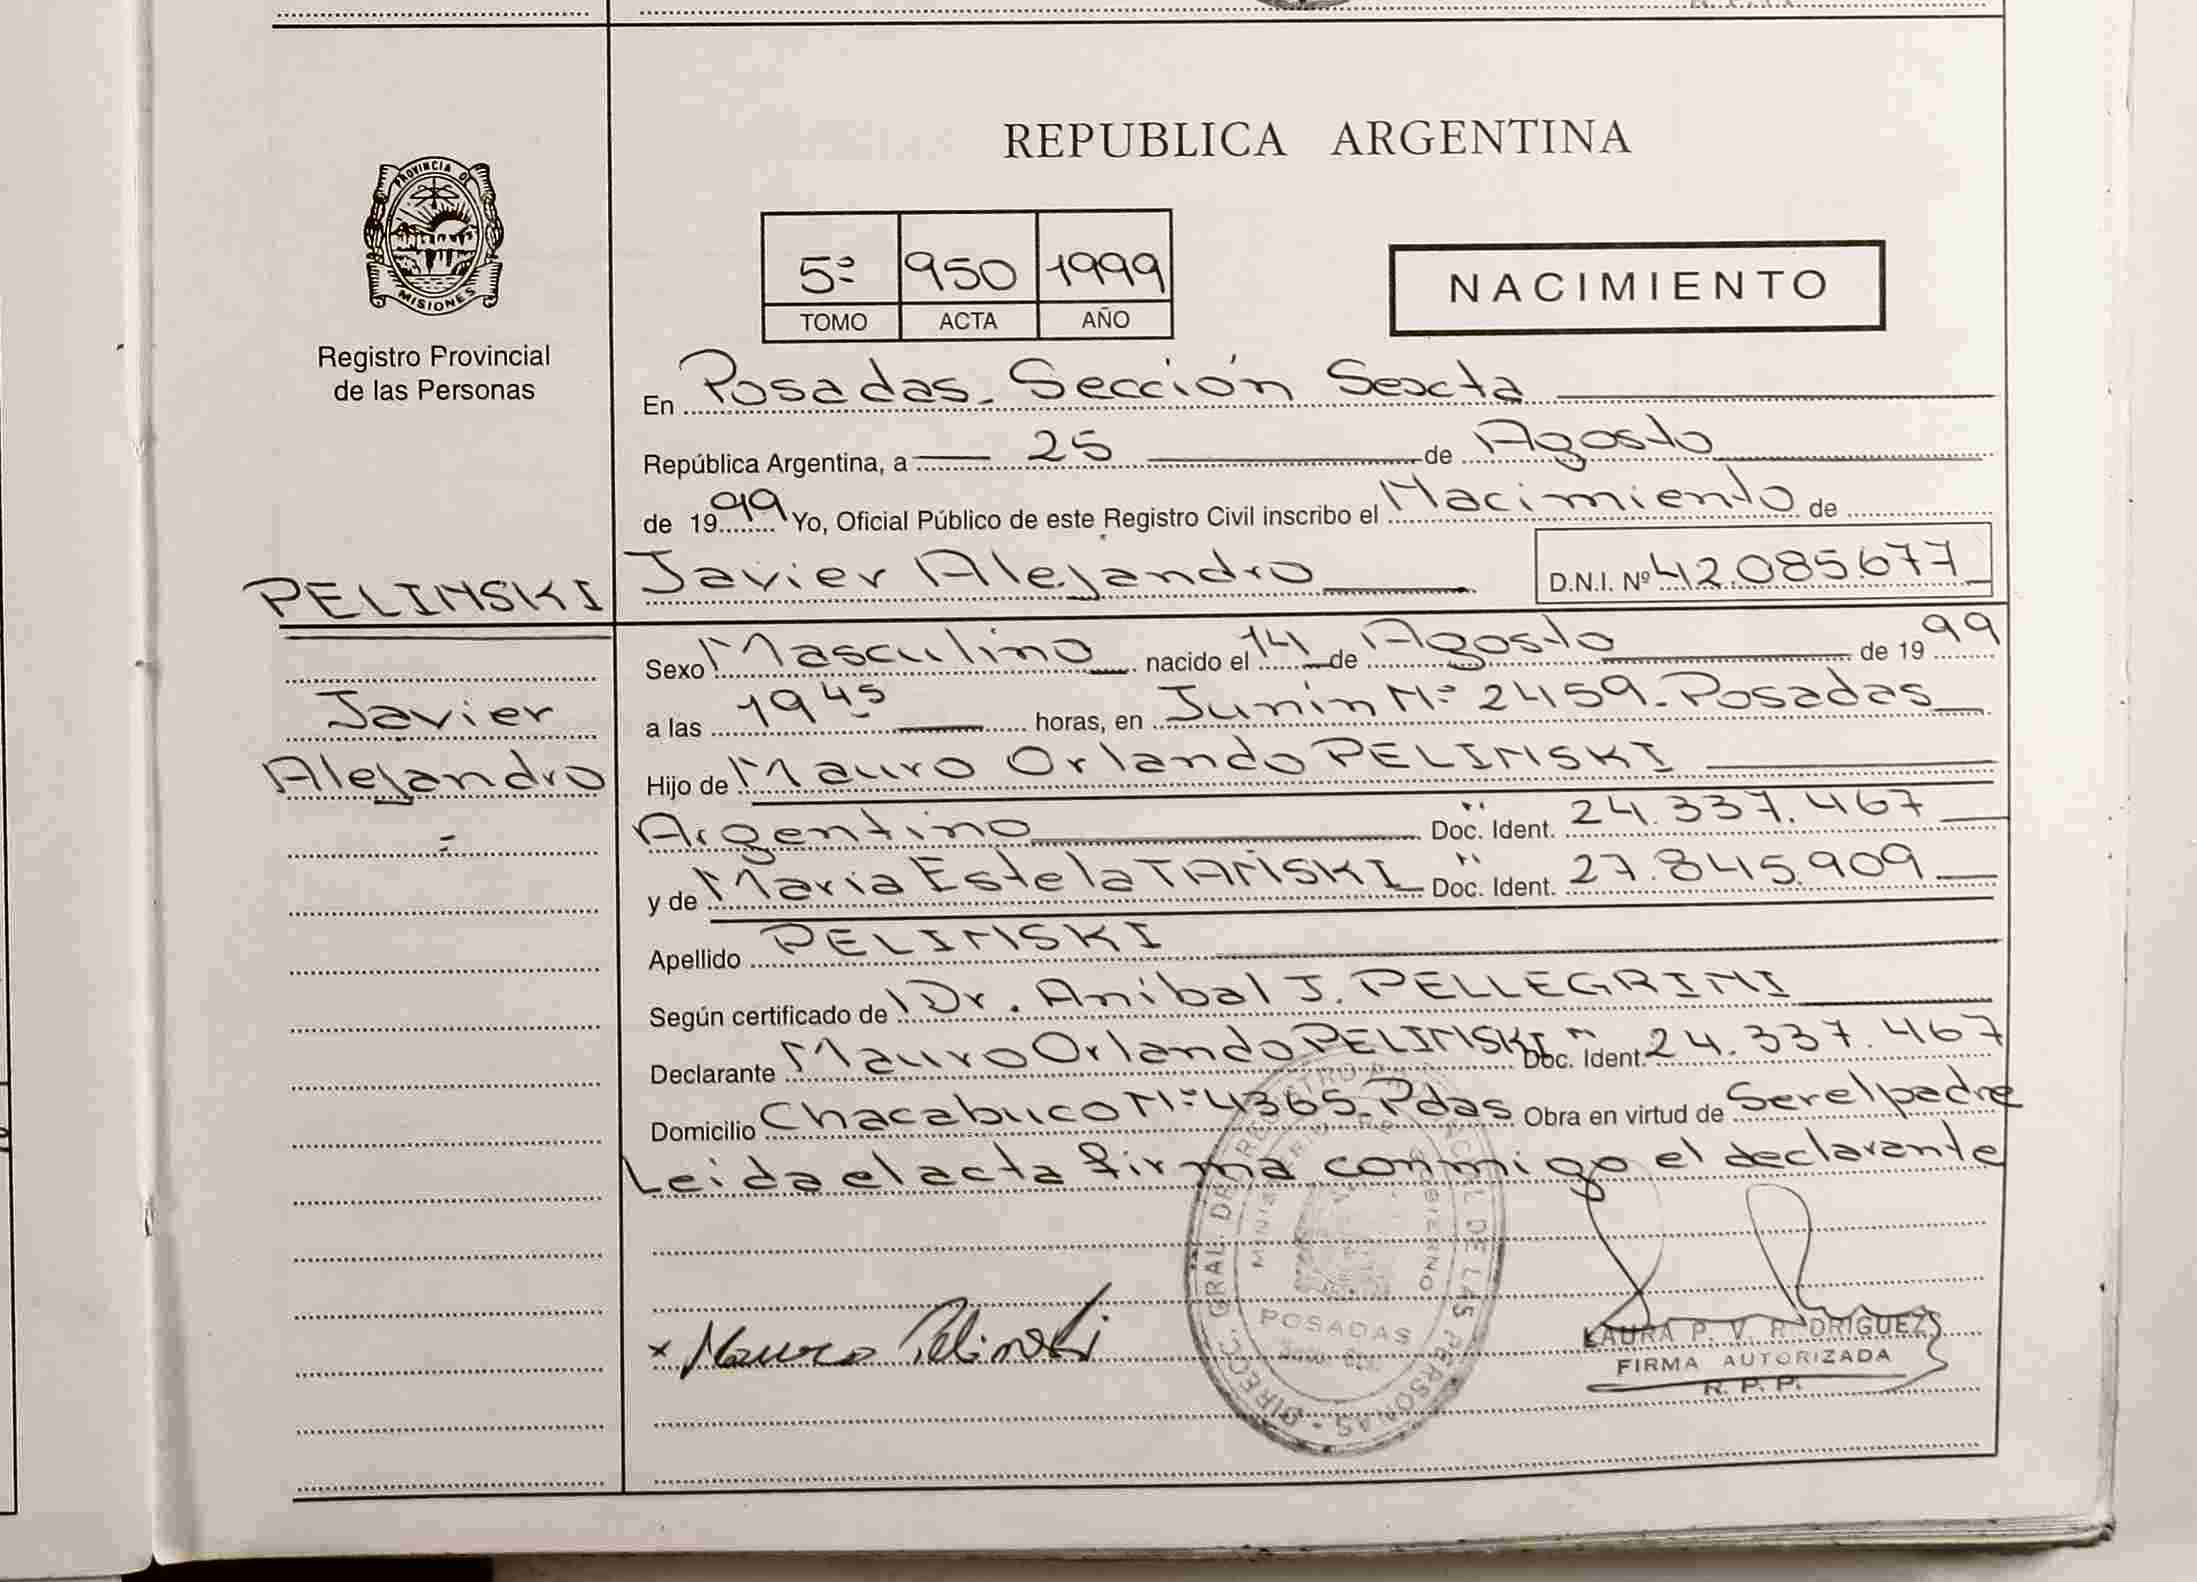 PROVINCIA DE
MISIONES
Registro Provincial
de las Personas
PELINSKI
Javier
Alejandro
REPUBLICA ARGENTINA
5º 950 1999
TOMO ACTA AÑO
NACIMIENTO
En Posadas. Sección Sexta
República Argentina, a 25 de Agosto
de 1999 Yo, Oficial Público de este Registro Civil inscribo el Nacimiento de
Javier Alejandro D.N.I. Nº 42.085.677
Sexo Masculino nacido el 14 de Agosto de 1999
a las 19 45 horas, en Junín Nº 2459. Posadas
Hijo de Mauro Orlando PELINSKI
Argentino Doc. Ident. 24.337.467
y de María Estela TAÑSKI Doc. Ident. 27.845.909
Apellido PELINSKI
Según certificado de Dr. Aníbal J. PELLEGRINI
Declarante Mauro Orlando PELINSKI Doc. Ident. 24.337.467
Domicilio Chacabuco Nº 4365. Pdas Obra en virtud de Ser el padre
Leida el acta firma conmigo el declarante
x Mauro Pelinski
DIRECC. GRAL. DE REGISTRO PROVINCIAL DE LAS PERSONAS
MINISTERIO DE GOBIERNO
POSADAS
LAURA P. V. RODRIGUEZ
FIRMA AUTORIZADA
R. P. P.